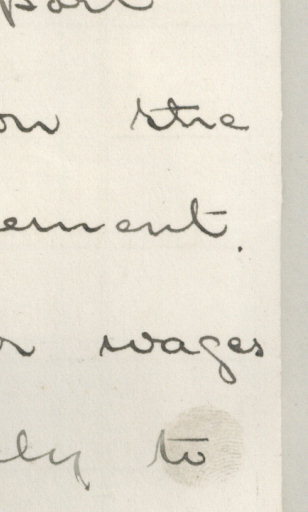 port
on the
ement.
or wages
ly to